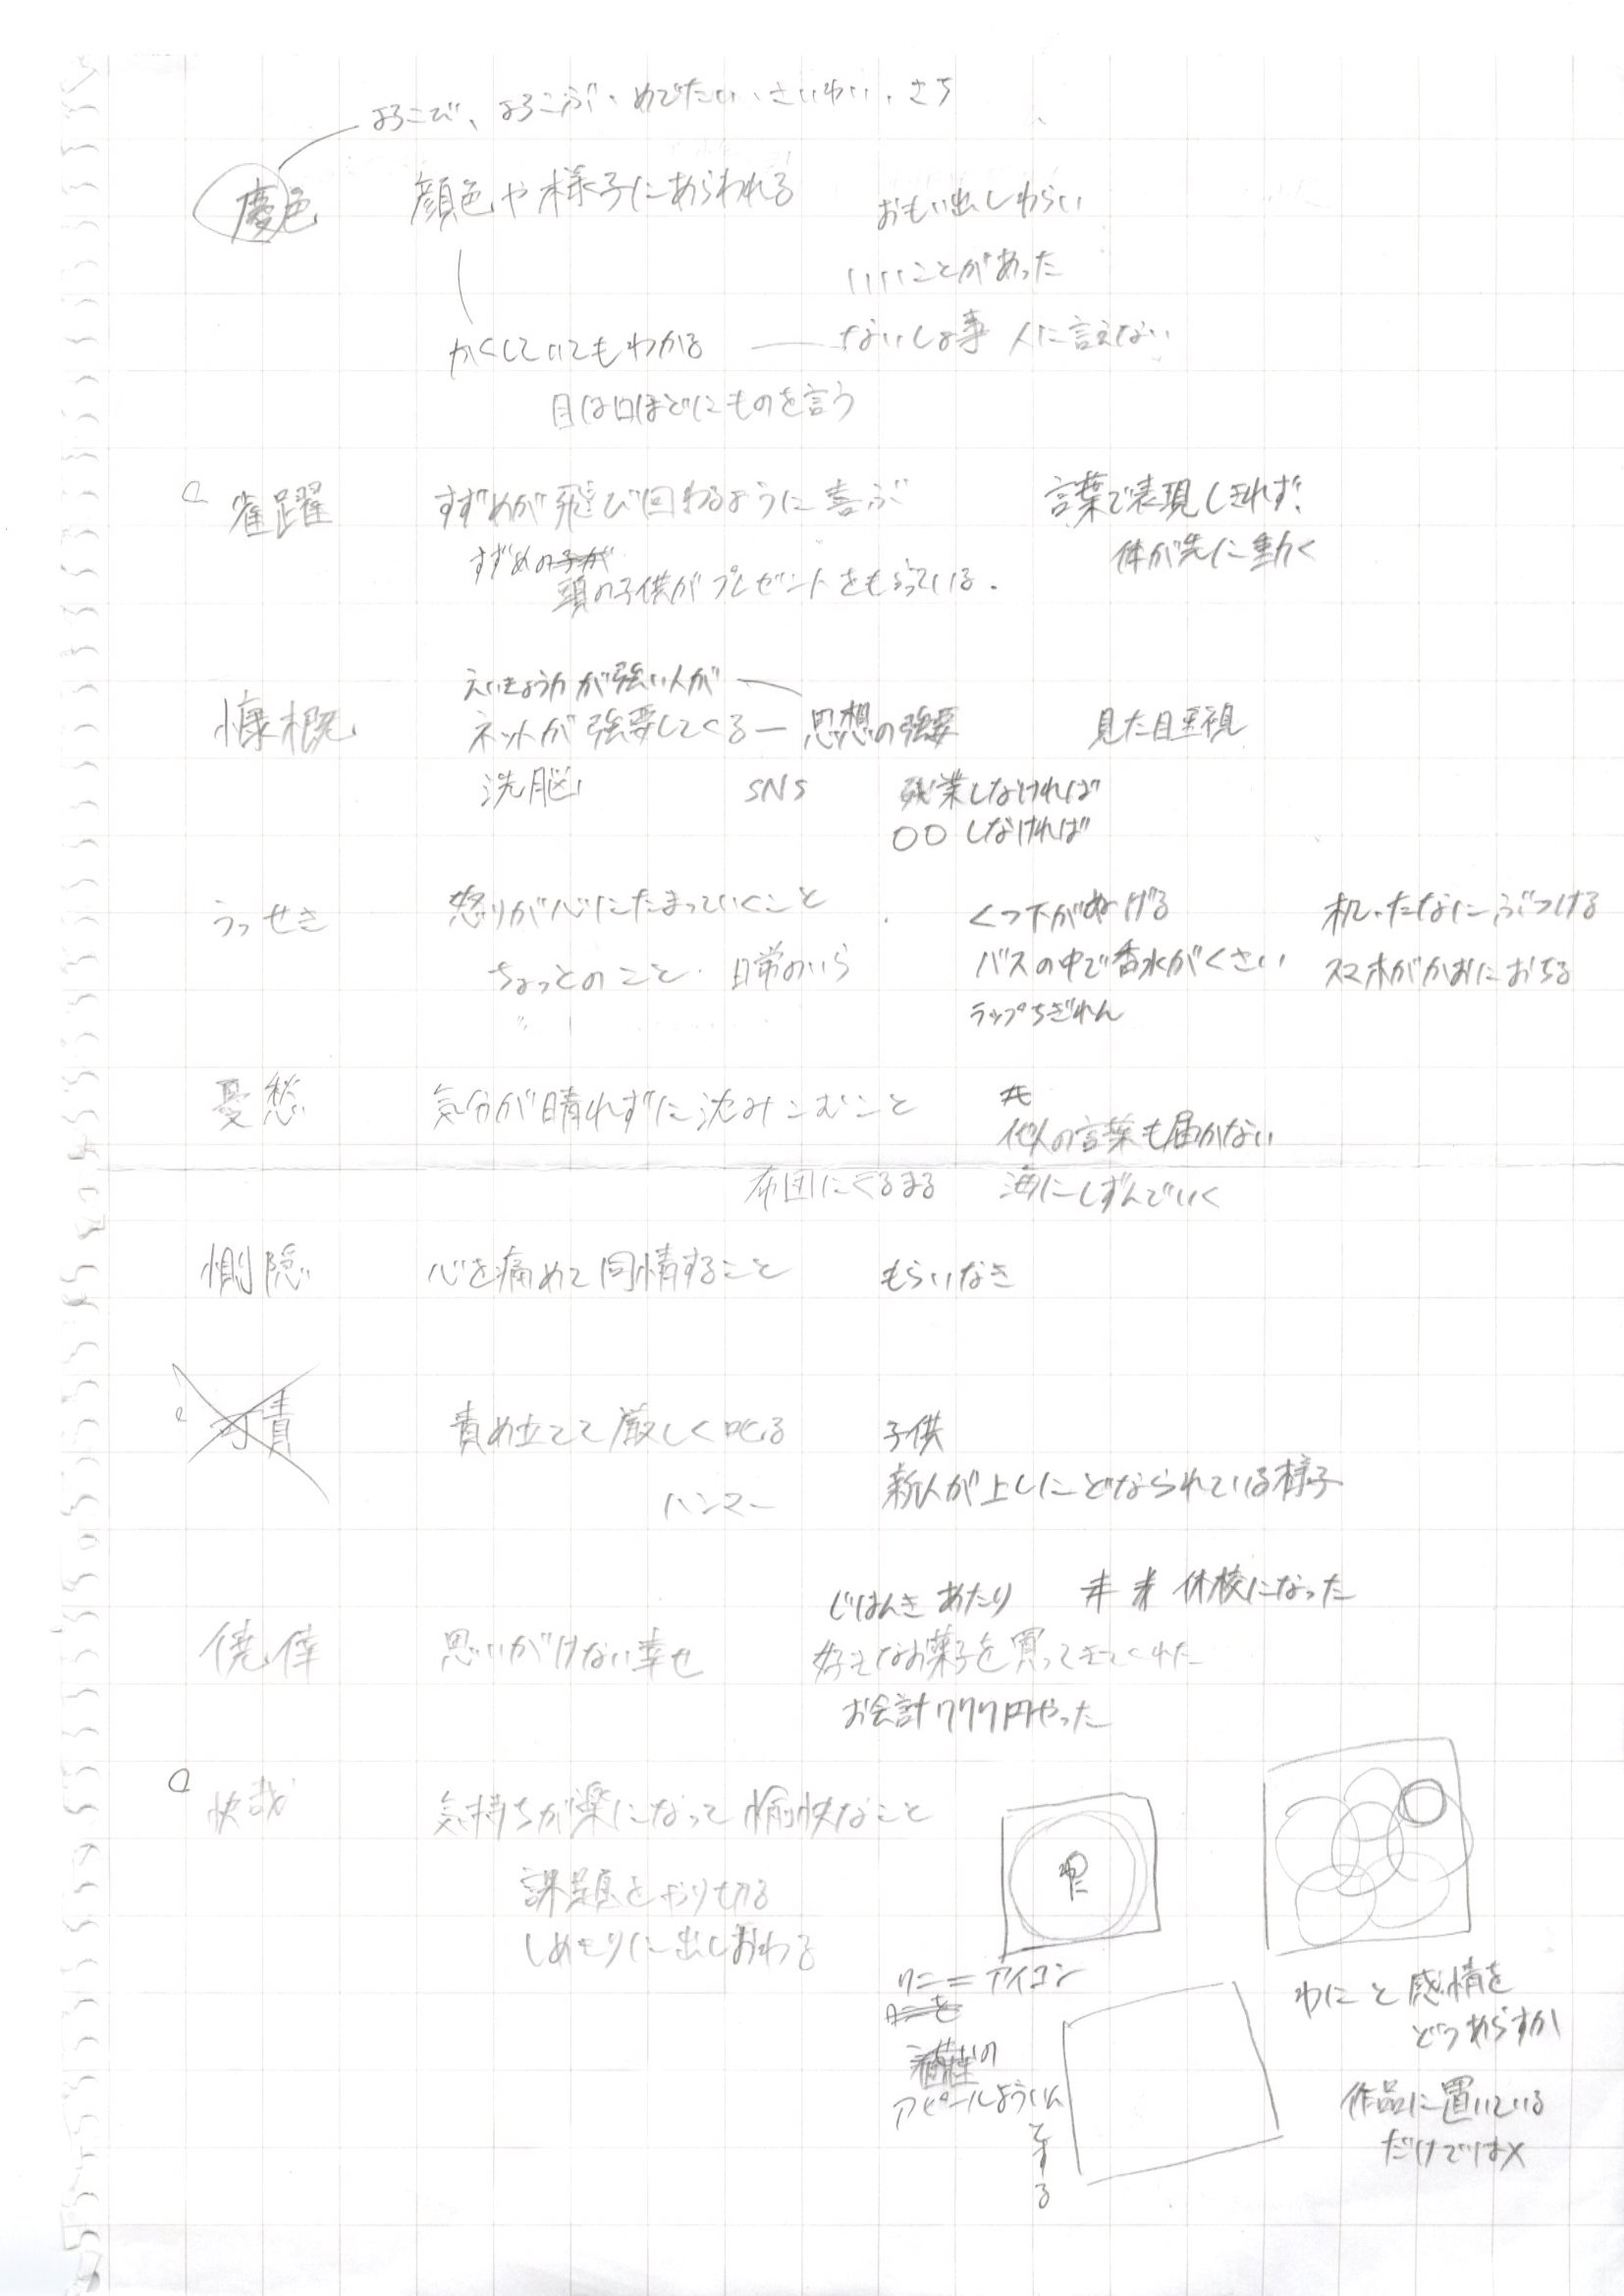 よろこび、よろこぶ、めでたい、さいわい、さち
慶色 顔色や様子にあらわれる おもい出しわらい
いいことがあった
かくしていてもわかる ないしょ事 人に言えない
目は口ほどにものを言う
雀躍 すずめが飛び回わるように喜ぶ 言葉で表現しきれず、
体が先に動く
すずめの子が
頭の子供がプレゼントをもらっている.
えいきょう力が強い人が
慷概 ネットが強要してくる 思想の強要 見た目重視
洗脳 SNS 残業しなければ
〇〇しなければ
うっせき 怒りが心にたまっていくこと くつ下がぬげる 机、たなにぶつける
ちょっとのこと 日常のいら バスの中で香水がくさい スマホがかおにおちる
ラップちぎれん
憂愁 気分が晴れずに沈みこむこと
他人の言葉も届かない
布団にくるまる 海にしずんでいく
惻隠 心を痛めて同情すること もらいなき
可責 責め立てて厳しく叱る 子供
ハンマー 新人が上しにどなられている様子
じはんきあたり 休校になった
僥倖 思いがけない幸せ 好きなお菓子を買ってきてくれた
お会計777円やった
快哉 気持ちが楽になって愉快なこと
課題をやり切る
しめきりに出しおわる
わに
ワニ=アイコン
ワニを
の
アピールよういん
とする
わにと感情を
どうあらすか
作品に置いている
だけでは×